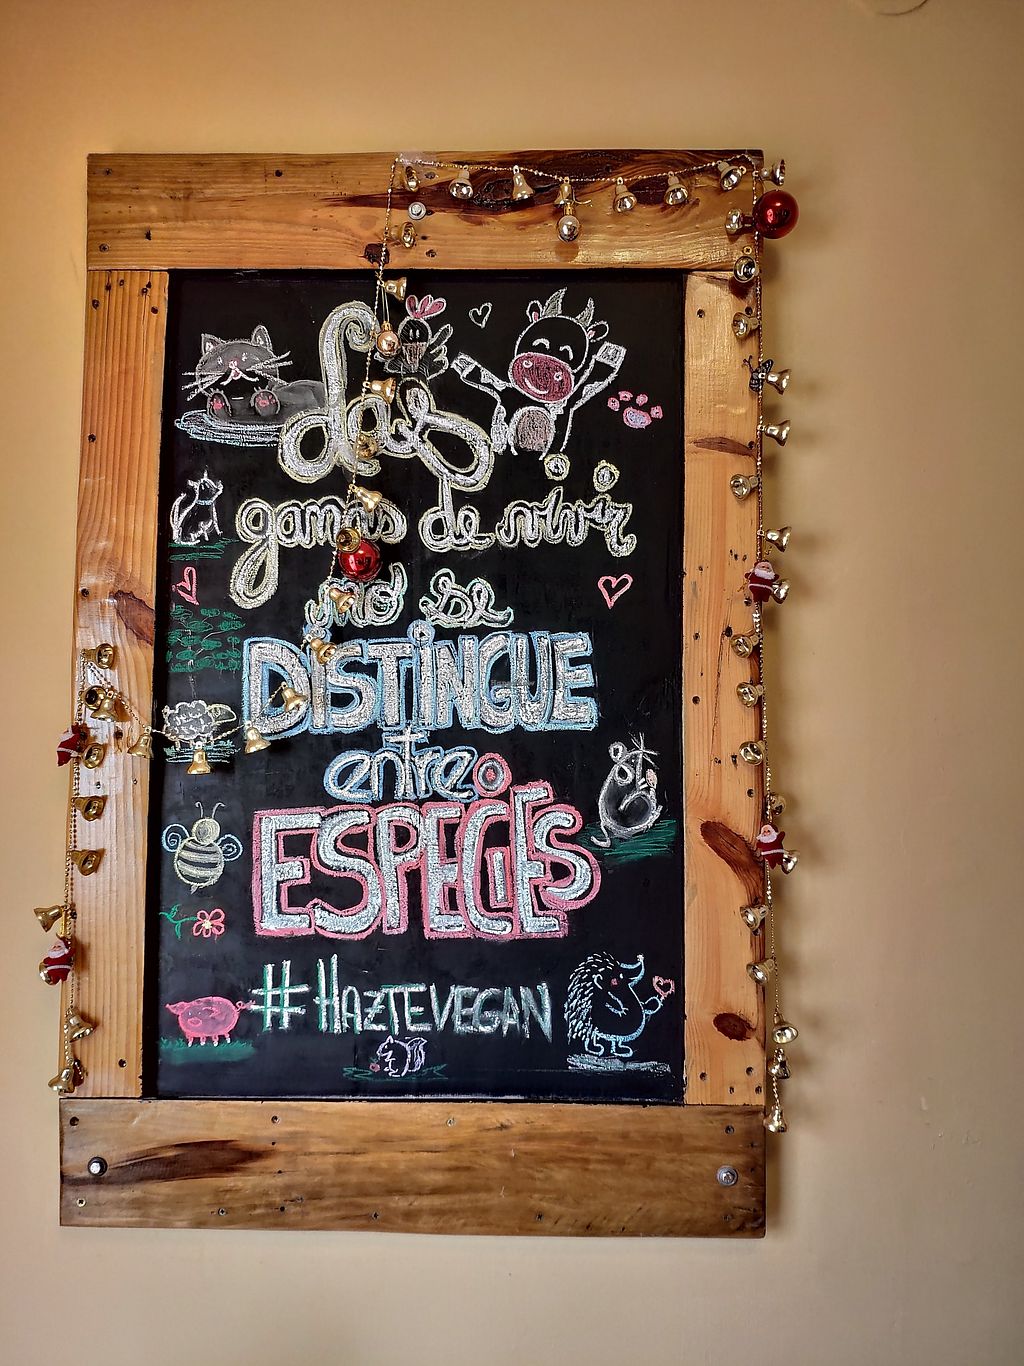 Las
ganas de vivir
no se
DiSTiNGUE
entre
ESPECiES
#HAZTEVEGAN